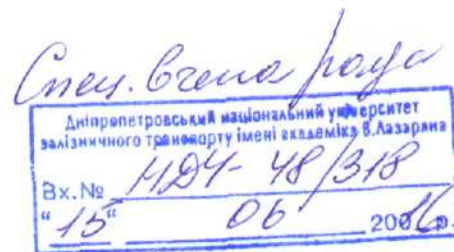 Спец. вчена рада
Дніпропетровський національний університет
залізничного транспорту імені академіка В.Лазаряна
Вх.№ НДЧ-48/318
"15" 06 2016 р.